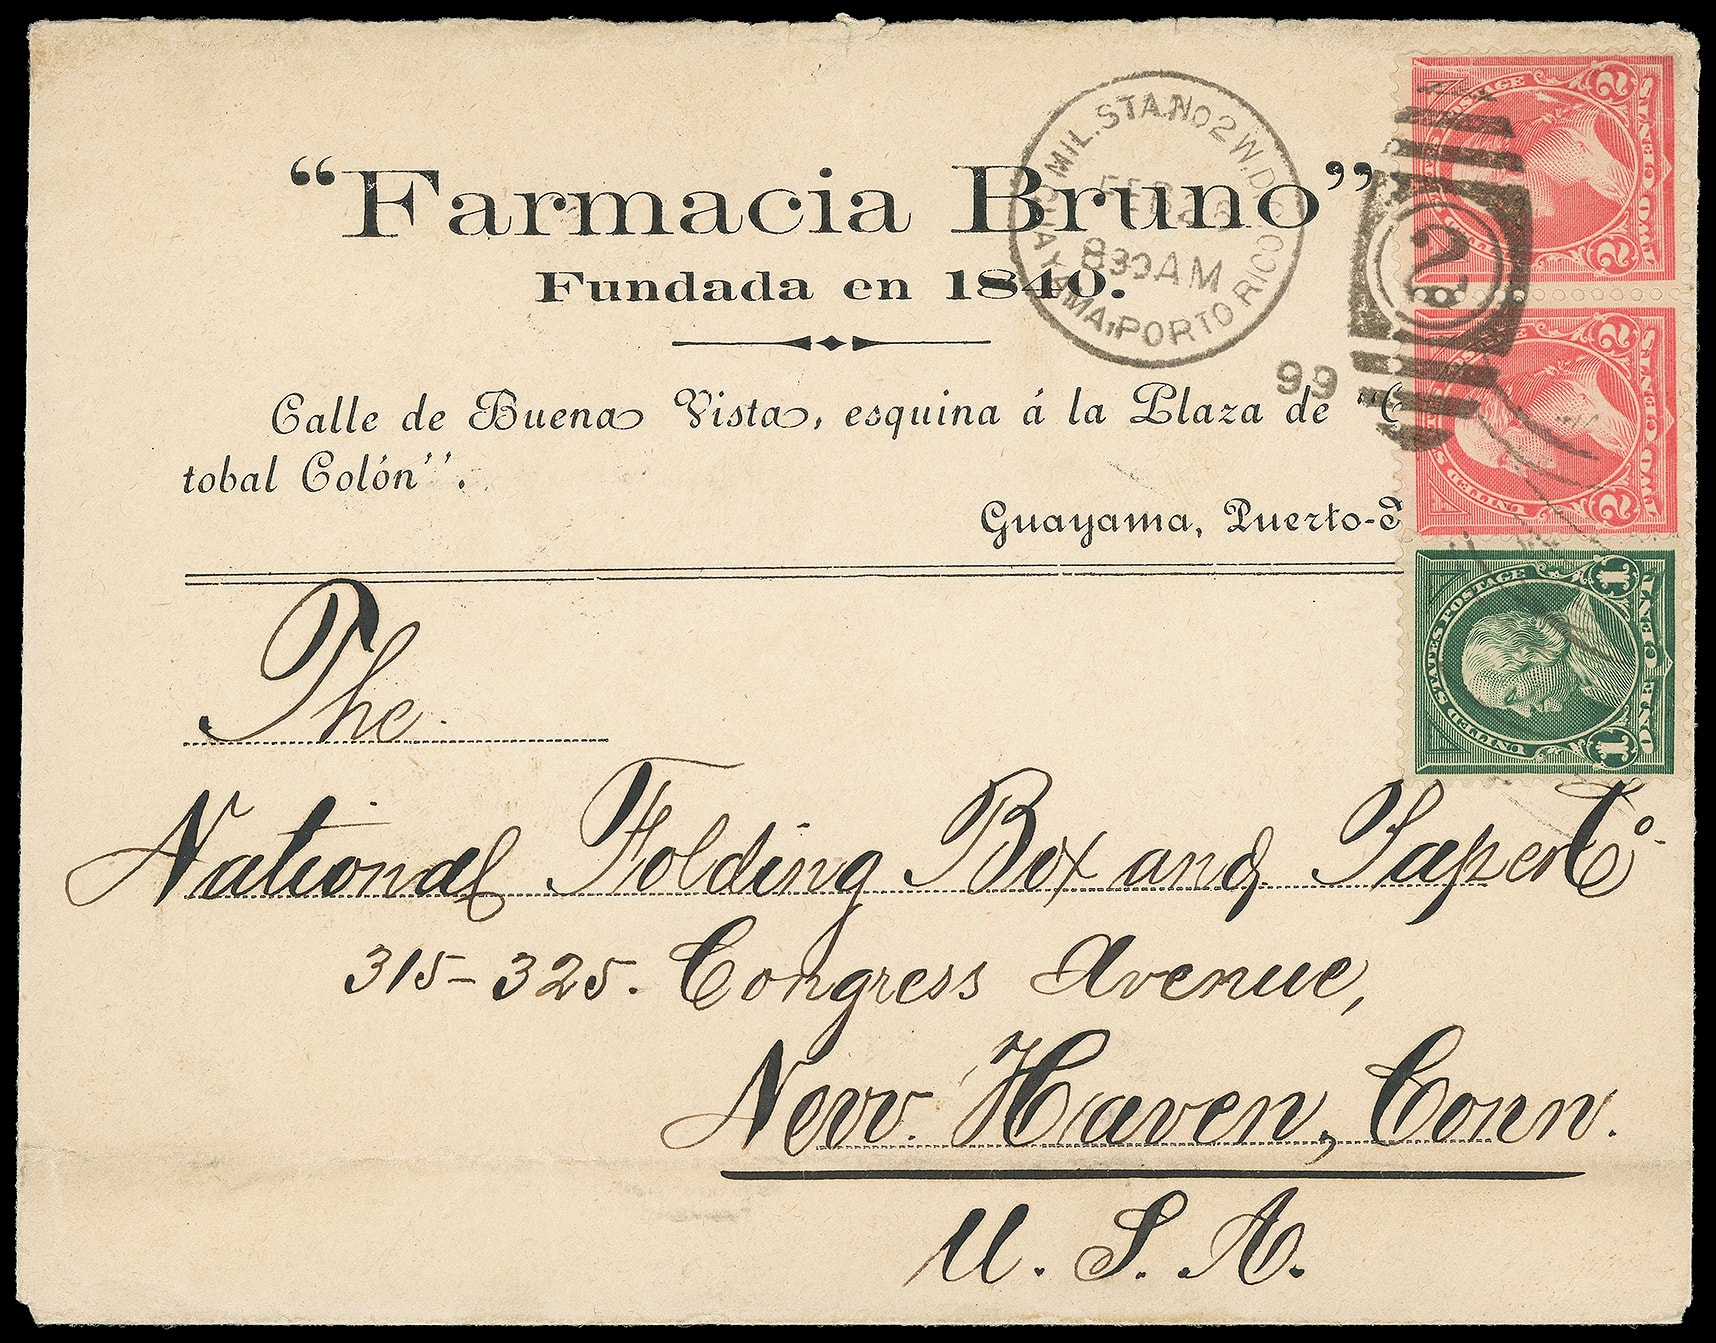 "Farmacia Bruno"
Fundada en 1840.
Calle de Buena Vista, esquina á la Plaza de
tobal Colón".
Guayama, Puerto-
MIL. STA. No 2 W.D.C.
FEB 26
830AM
GUAYAMA, PORTO RICO
99
2
UNITED STATES POSTAGE
2 2
TWO CENTS
UNITED STATES POSTAGE
2 2
TWO CENTS
UNITED STATES POSTAGE
1 1
ONE CENT
The
National Folding Box and Paper Co.
315-325. Congress Avenue,
New Haven, Conn.
U. S. A.